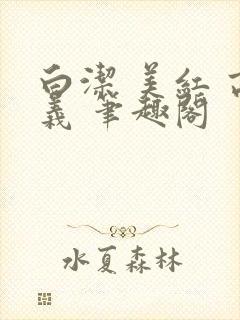 白潔 美紅 高
義 筆趣閣
水夏森林